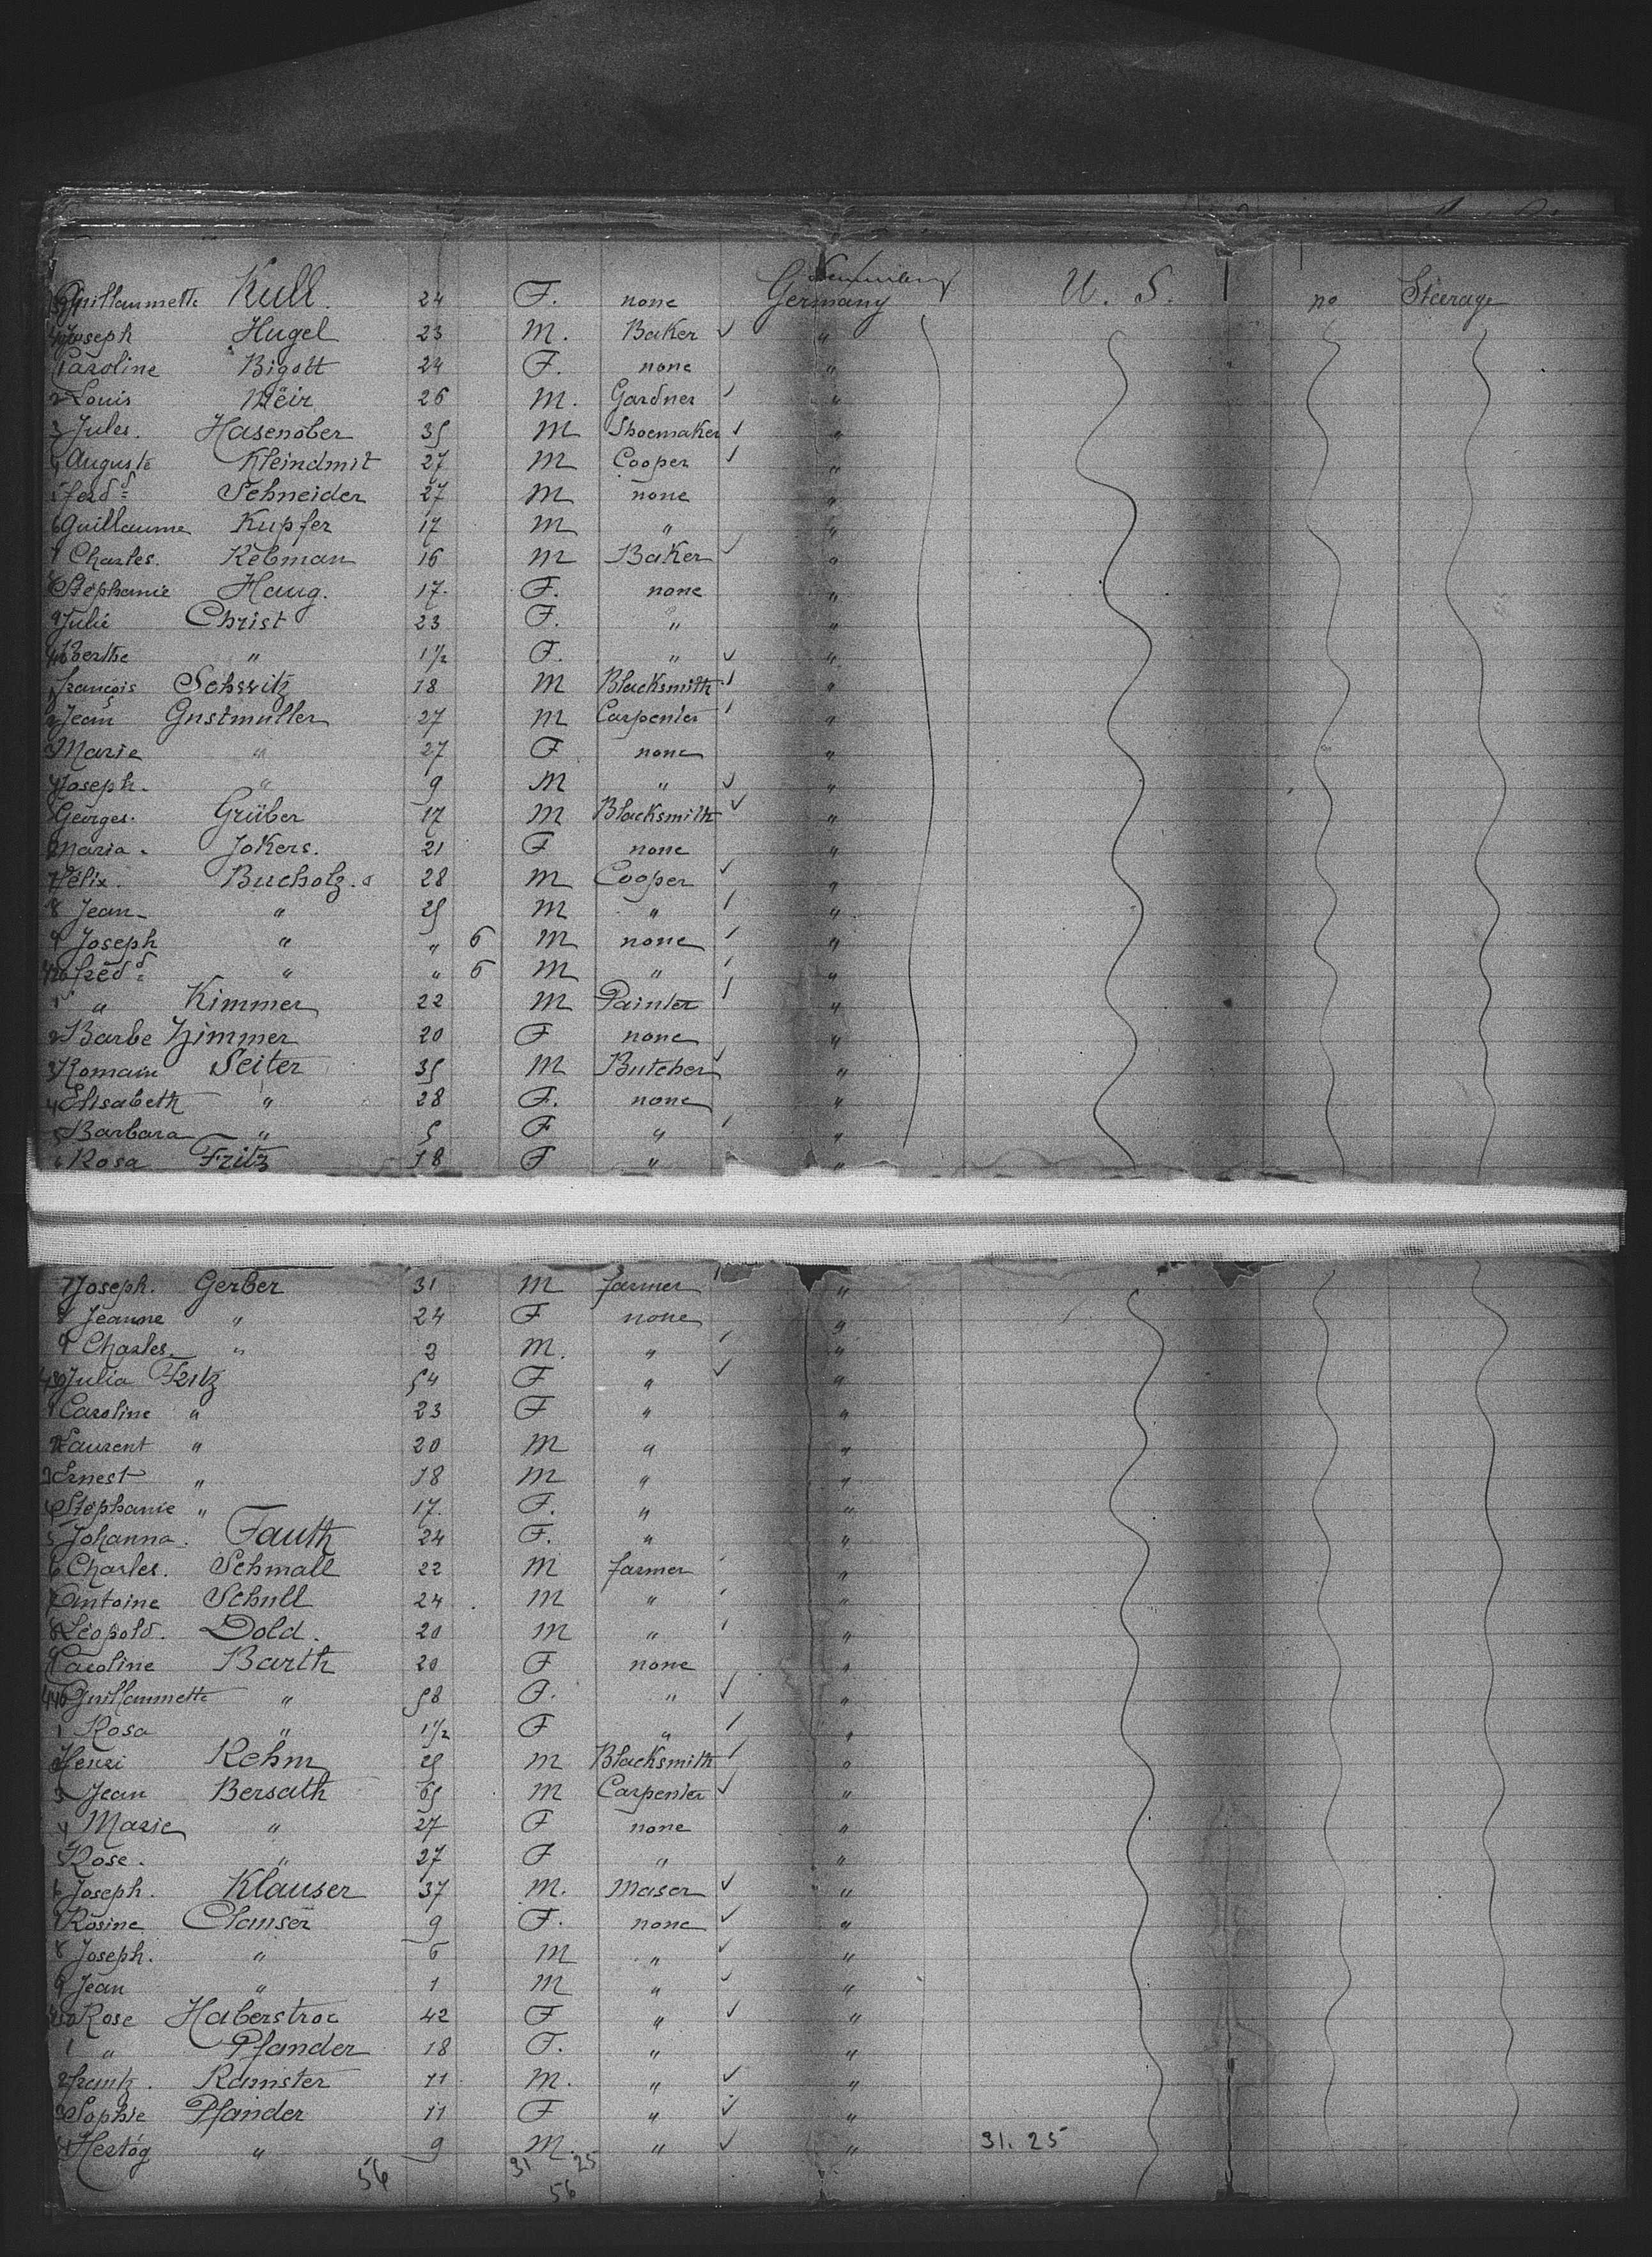 Guillaumette Kull. 24 F. none Germany U. S. no Steerage
Joseph Hugel 23 M. Baker "
1 Caroline Bigott 24 F. none "
2 Louis Meir 26 M. Gardner "
3 Jules. Hasenober 35 M Shoemaker "
4 Auguste Kleindmit 27 M Cooper "
5 ferd d = Schneider 27 M none "
6 Guillaume Kupfer 17 M " "
7 Charles. Rebman 16 M Baker "
8 Stéphanie Haug. 17. F. none "
9 Julie Christ 23 F. " "
410 Berthe " 1 1/2 F. " "
1 François Schwitz 18 M Blacksmith "
2 Jean Gustmuller 27 M Carpenter "
3 Marie " 27 F none "
4 Joseph. " 9 M " "
5 Georges. Grüber 17 M Blacksmith "
6 Maria. Jokers. 21 F none "
7 Félix. Bucholz. 28 M Cooper "
8 Jean " 25 M " "
9 Joseph " " 6 M none "
420 fréd d = " " 6 M " "
1 " Kimmer 22 M Painter "
2 Barbe Zimmer 20 F none "
3 Romain Seiter 35 M Butcher "
4 Elisabeth " 28 F. none "
5 Barbara " 5 F " "
6 Rosa Fritz 18 F " "
7 Joseph. Gerber 31 M farmer "
8 Jeanne " 24 F none "
9 Charles. " 2 M. " "
430 Julia Fritz 54 F " "
1 Caroline " 23 F " "
2 Laurent " 20 M " "
3 Ernest " 18 M " "
4 Stéphanie " 17. F. " "
5 Johanna. Fauth 24 F. " "
6 Charles. Schmall 22 M farmer "
7 Antoine Schull 24 M " "
8 Léopold. Dold. 20 M " "
9 Caroline Barth 20 F none "
440 Guillaumette " 58 F. " "
1 Rosa " 1 1/2 F " "
2 Henri Rehm 25 M Blacksmith "
3 Jean Bersath 65 M Carpenter "
4 Marie " 27 F none "
5 Rose. " 27 F " "
6 Joseph. Klauser 37 M. Maser "
7 Rosine Clauser 9 F. none "
8 Joseph. " 6 M " "
9 Jean " 1 M " "
450 Rose Haberstroc 42 F " "
1 " Pfander 18 F. " "
2 frantz. Ramster 11 M. " "
3 Sophie Pfander 11 F " "
4 Hertog " 9 M. " " 31. 25
56 31 25
56